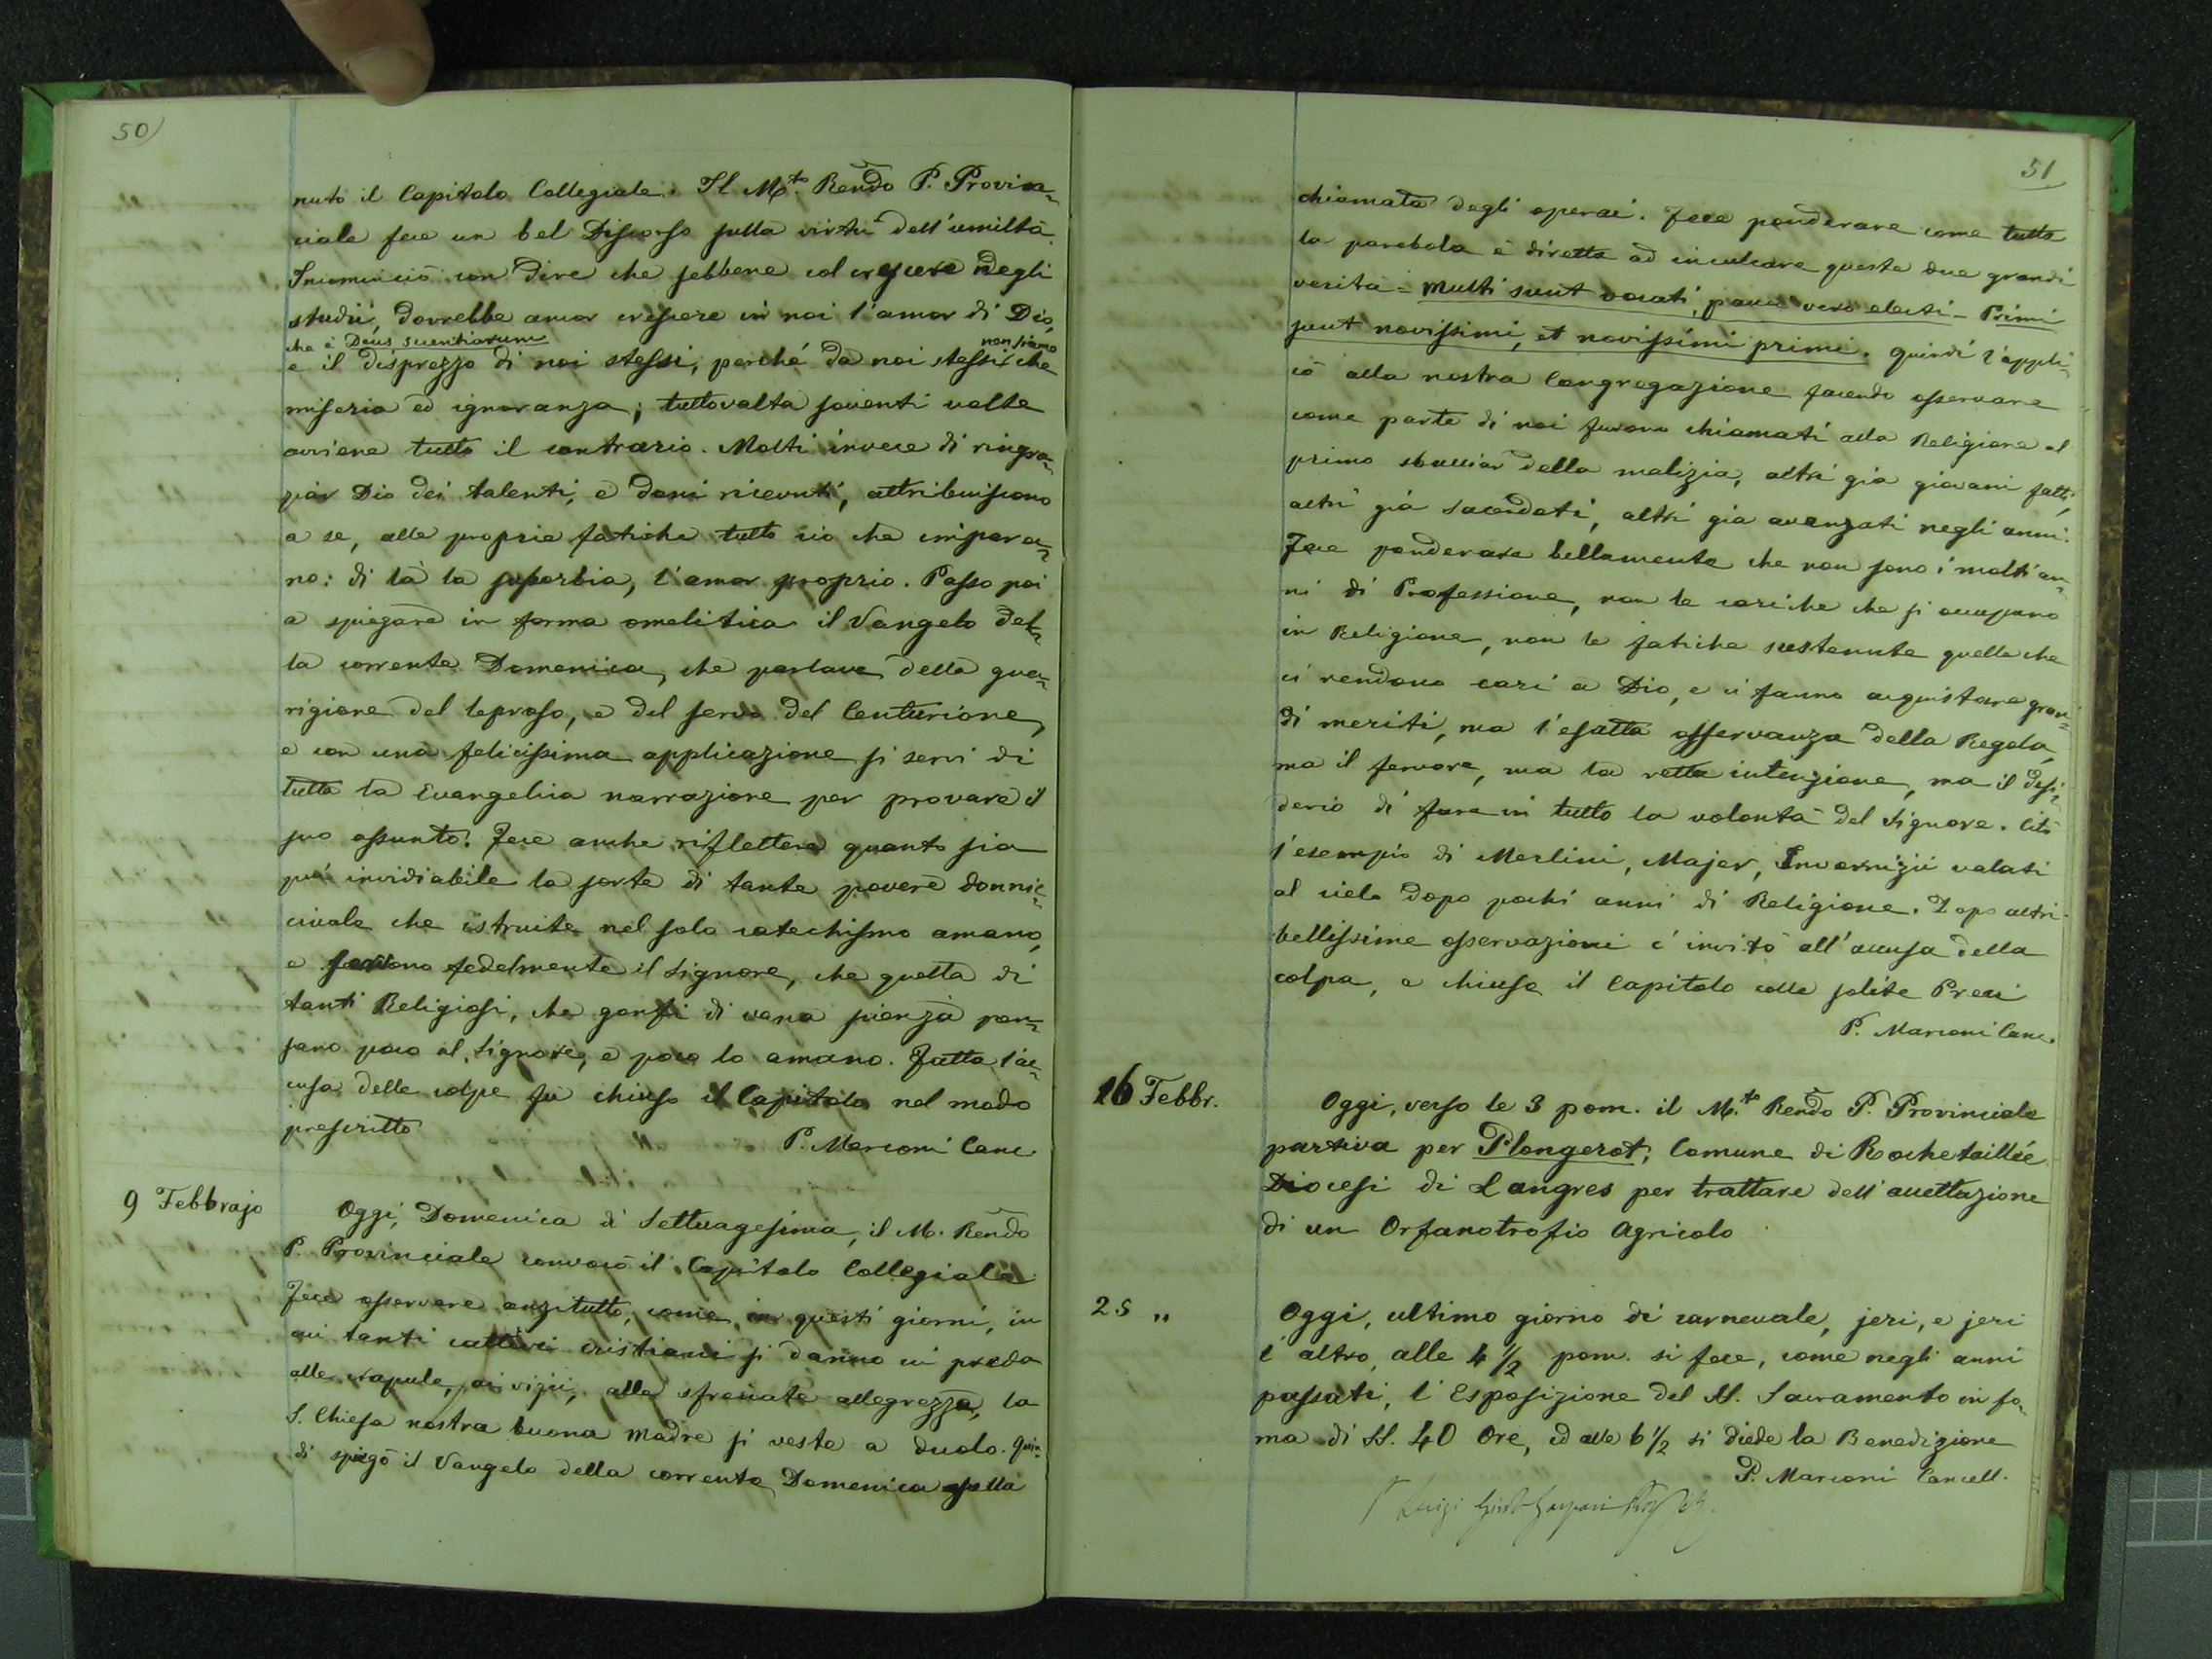 50)
nuto il Capitolo Collegiale. Il M.to Rendo P. Provin-
ciale fece un bel Discorso sulla virtù dell'umiltà.
Incominciò con dire che sebbene col crescere negli
studii, dovrebbe ancor crescere in noi l'amor di Dio,
che è Deus scientiarum
non siamo
e il disprezzo di noi stessi, perché da noi stessi che
miseria ed ignoranza; tuttavolta soventi volte
avviene tutto il contrario. Molti invece di ringra-
ziar Dio dei talenti, e doni ricevuti, attribuiscono
a se, alle proprie fatiche tutto ciò che impara-
no: di là la superbia, l'amor proprio. Passo poi
a spiegare in forma omelitica il Vangelo del-
la corrente Domenica, che parlava della gua-
rigione del leproso, e del servo del Centurione,
e con una felicissima applicazione si servi di
tutta la Evangelica narrazione per provare il
suo assunto. Fece anche riflettere quanto sia
più invidiabile la sorte di tante povere donnic-
ciuole che istruite nel solo catechismo amano,
e servono fedelmente il Signore, che quella di
tanti Religiosi, che gonfi di vana scienza pen-
sano poco al Signore, e poco lo amano. Fatta l'ac-
cusa delle colpe fu chiuso il Capitolo nel modo
prescritto
P. Marconi Canc.
9 Febbrajo
Oggi, Domenica di Settuagesima, il M. Rendo
P. Provinciale convocò il Capitolo Collegiale.
Fece osservare anzitutto, come in questi giorni, in
cui tanti cattivi cristiani si danno in preda
alle crapule, ai vizii, alle sfrenate allegrezze, la
S. Chiesa nostra buona madre si veste a duolo. Quin-
di spiegò il Vangelo della corrente Domenica sulla
51
chiamata degli operai. Fece ponderare come tutta
la parabola è diretta ad inculcare queste due grandi
verità = Multi sunt vocati, pauci vero electi - Primi
sunt novissimi, et novissimi primi. Quindi l'appli-
cò alla nostra Congregazione facendo osservare
come parte di noi furono chiamati alla Religione al
primo sbucciar della malizia, altri già giovani fatti,
altri già sacerdoti, altri già avanzati negli anni.
Fece ponderare bellamente che non sono i molti an-
ni di Professione, non le cariche che si occupano
in Religione, non le fatiche sostenute quelle che
ci rendono cari a Dio, e ci fanno acquistare gran-
di meriti, ma l'esatta osservanza della Regola,
ma il fervore, ma la retta intenzione, ma il desi-
derio di fare in tutto la volontà del Signore. Citò
l'esempio di Merlini, Majer, Invernizii volati
al cielo dopo pochi anni di Religione. Dopo altri
bellissime osservazioni c'invitò all'accusa della
colpa, e chiuse il Capitolo colle solite Preci
P. Marconi Canc.
16 Febbr.
Oggi, verso le 3 pom. il M.to Rendo P. Provinciale
partiva per Plongerot, Comune di Rochetaillée
Diocesi di Langres per trattare dell'accettazione
di un Orfanotrofio Agricolo
25 "
Oggi, ultimo giorno di carnevale, jeri, e jeri
l'altro, alle 4 1/2 pom. si fece, come negli anni
passati, l'Esposizione del SS. Sacramento in fo-
ma di SS. 40 Ore, ed alle 6 1/2 si diede la Benedizione
P. Marconi Cancell.
Luigi